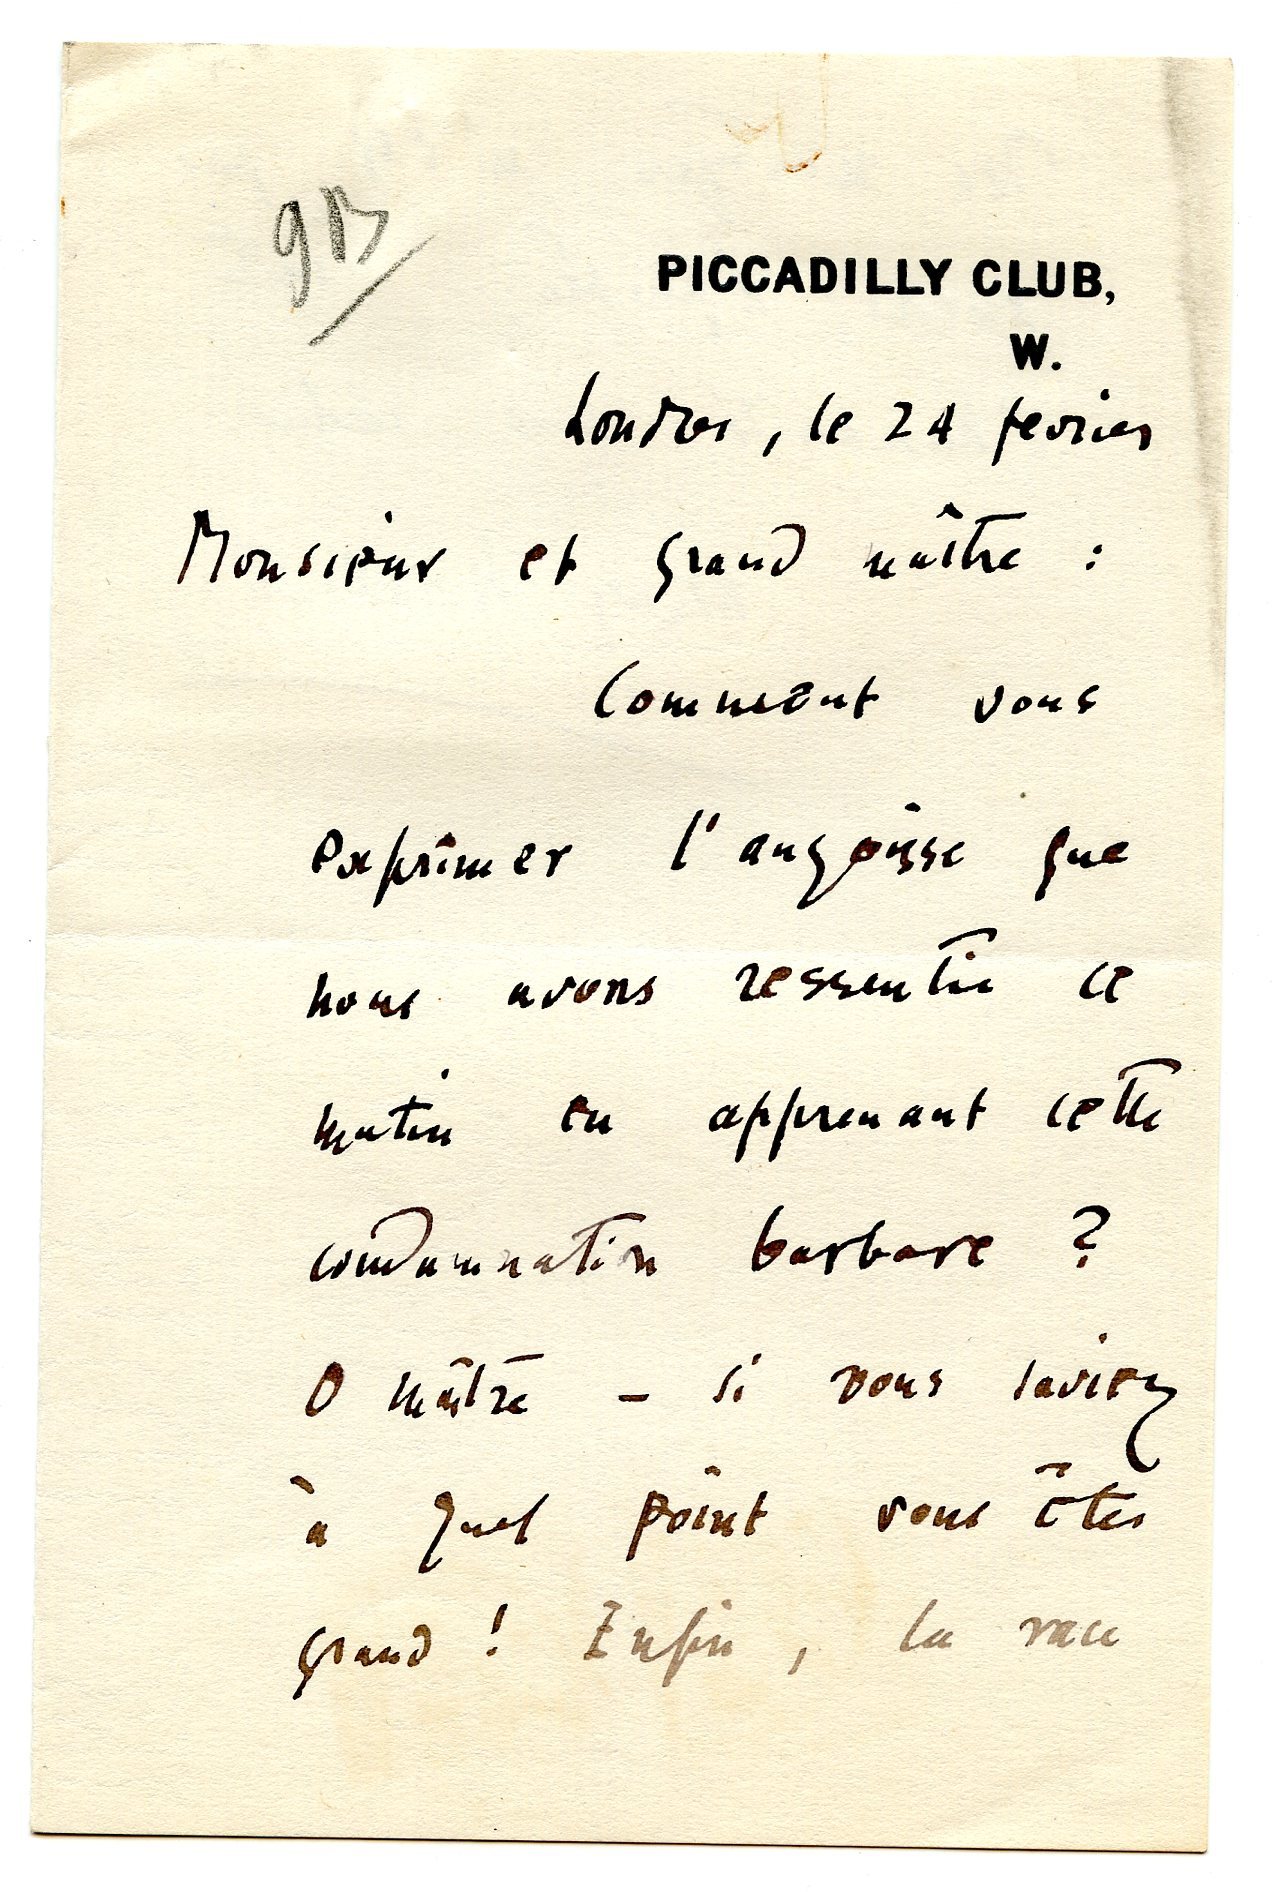 PICCADILLY CLUB,
W.
Londres, le 24 fevrier
Monsieur et grand maître :
Comment vous
exprimer l'angoisse que
nous avons ressentie ce
matin en apprenant cette
condamnation barbare ?
O maître – si vous saviez
à quel point vous êtes
grand ! Enfin, la race